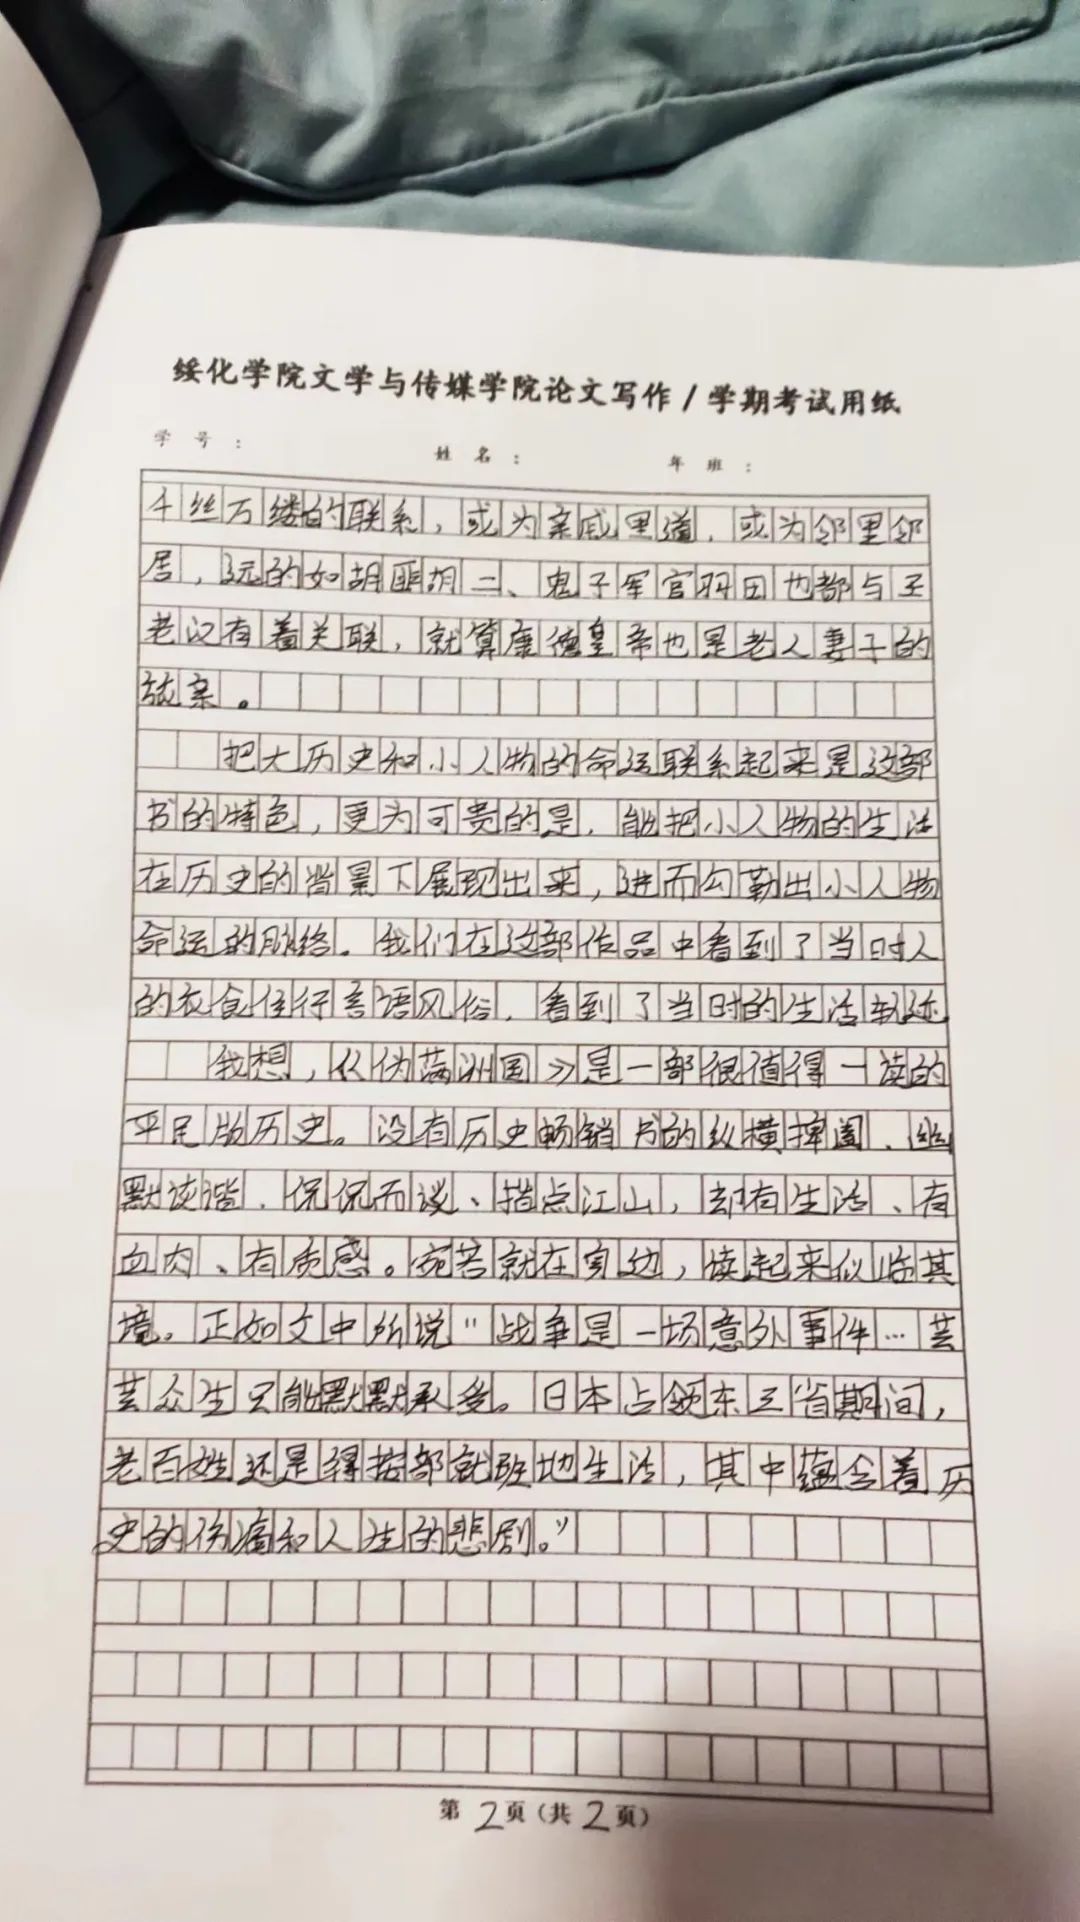 绥化学院文学与传媒学院论文写作／学期考试用纸
学号： 姓名： 年班：
千丝万缕的联系，或为亲戚里道，或为邻里邻
居，远的如胡匪胡二、鬼子军官羽田也都与王
老汉有着关联，就算康德皇帝也是老人妻子的
远亲。
把大历史和小人物的命运联系起来是这部
书的特色，更为可贵的是，能把小人物的生活
在历史的背景下展现出来，进而勾勒出小人物
命运的脉络。我们在这部作品中看到了当时人
的衣食住行言语风俗，看到了当时的生活轨迹
我想，《伪满洲国》是一部很值得一读的
平民版历史。没有历史畅销书的纵横捭阖、幽
默诙谐、侃侃而谈、指点江山，却有生活、有
血肉、有质感。宛若就在身边，读起来似临其
境。正如文中所说"战争是一场意外事件…芸
芸众生只能默默承受。日本占领东三省期间，
老百姓还是得按部就班地生活，其中蕴含着历
史的伤痛和人生的悲剧。"
第2页（共2页）